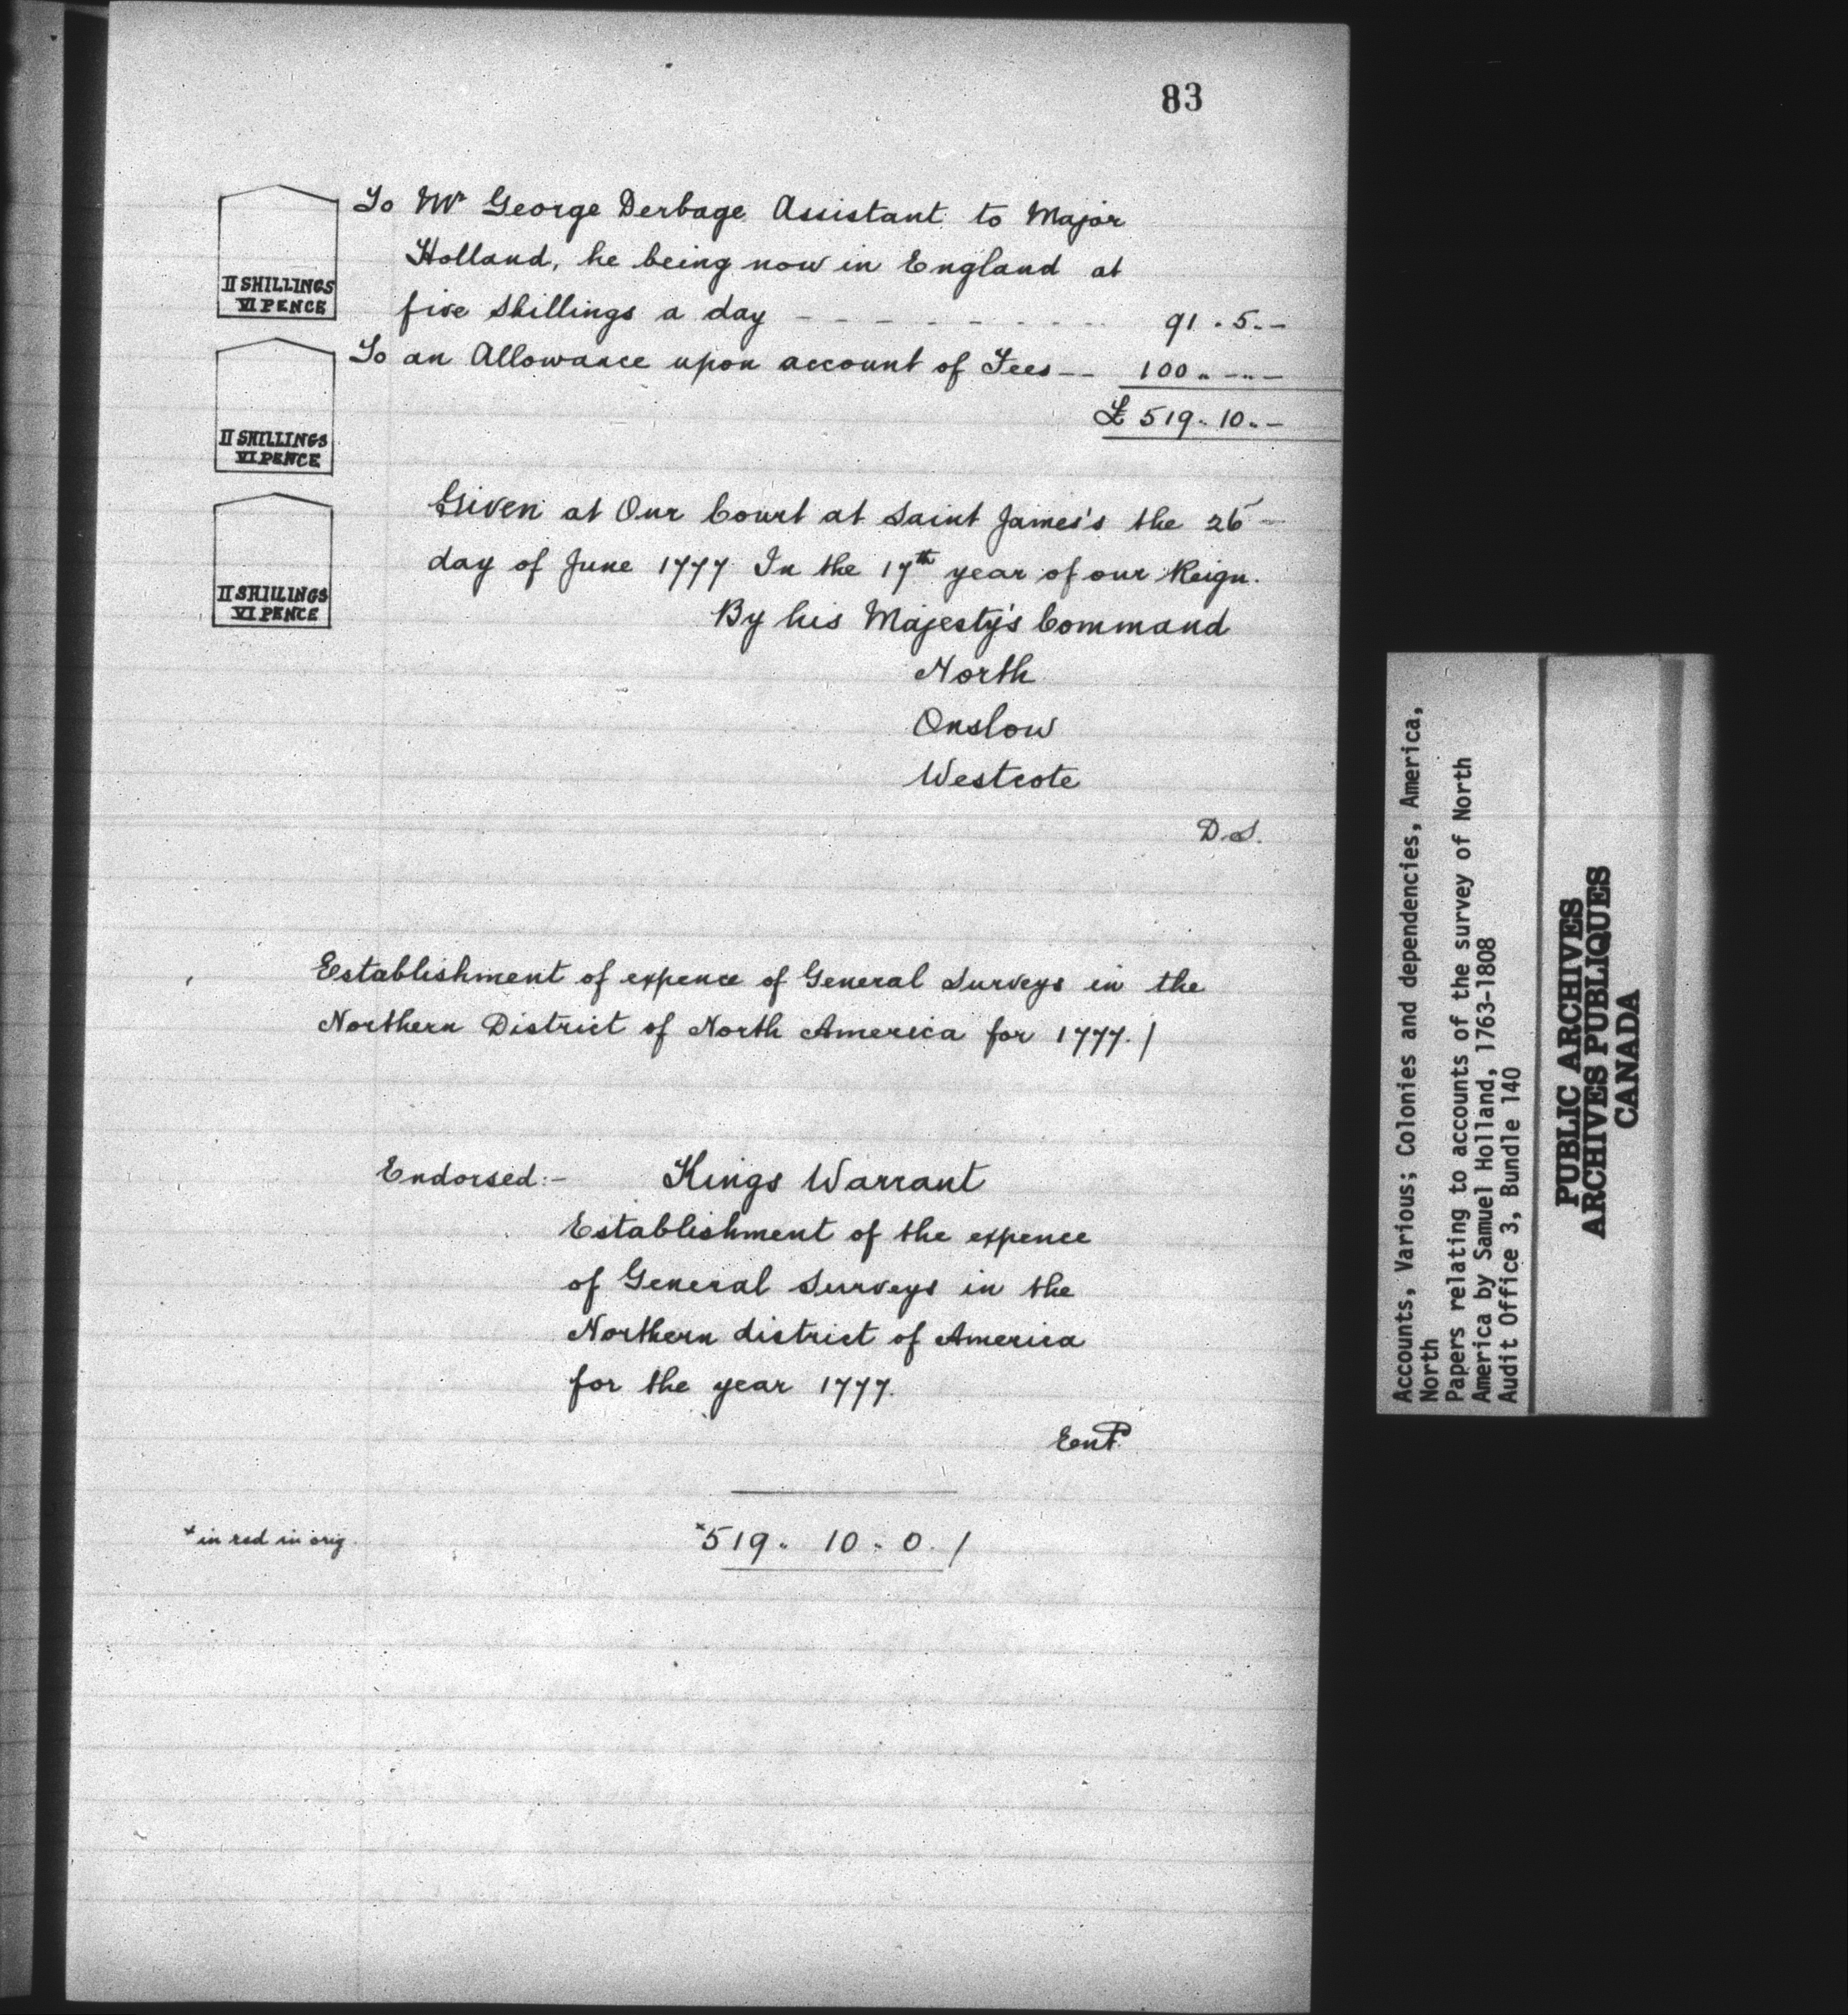 83
To Mr George Derbage Assistant to Major
Holland, he being now in England at
five Shillings a day - - - - - - - - 91 . 5 . -
To an Allowance upon account of Fees -- 100 " - " -
£ 519 . 10 . -
II SHILLINGS
VI PENCE
II SHILLINGS
VI PENCE
II SHILLINGS
VI PENCE
Given at Our Court at Saint James's the 26
day of June 1777 In the 17th year of our Reign.
By his Majesty's Command
North
Onslow
Westcote
D.S.
Establishment of expence of General Surveys in the
Northern District of North America for 1777. /
Endorsed:- Kings Warrant
Establishment of the expence
of General Surveys in the
Northern district of America
for the year 1777.
Entd
* in red in orig. *519 . 10 . 0 . /
Accounts, Various; Colonies and dependencies, America,
North
Papers relating to accounts of the survey of North
America by Samuel Holland, 1763-1808
Audit Office 3, Bundle 140
PUBLIC ARCHIVES
ARCHIVES PUBLIQUES
CANADA